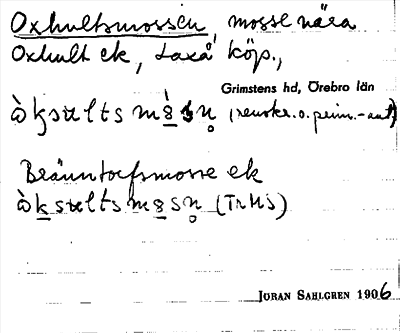 Oxhultsmossen, mosse nära
Oxhult ek, Laxå köp.,
Grimstens hd, Örebro län
(renskr. o. prim.-ant)
Bränntorfsmosse ek
(TrHS)
JÖRAN SAHLGREN 1906